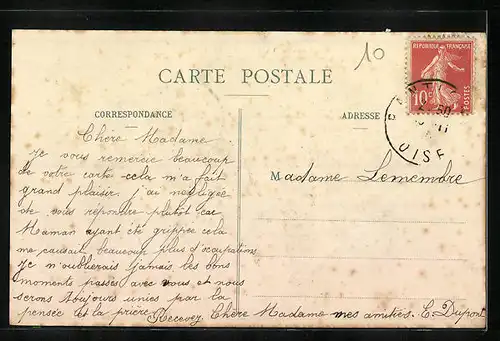 10
CARTE POSTALE
CORRESPONDANCE
ADRESSE
REPUBLIQUE FRANÇAISE
10c
POSTES
OISE
Chère Madame
Je vous remercie beaucoup
de votre carte cela m'a fait
grand plaisir. j'ai négligée
de vous répondre plutôt car
Maman ayant été grippée cela
me causait beaucoup plus d'occupations
Je n'oublierais jamais les bons
moments passés avec vous et nous
serons toujours unies par la
pensée et la prière
Recevez Chère Madame mes amitiés. E. Dupont
Madame Lemembre